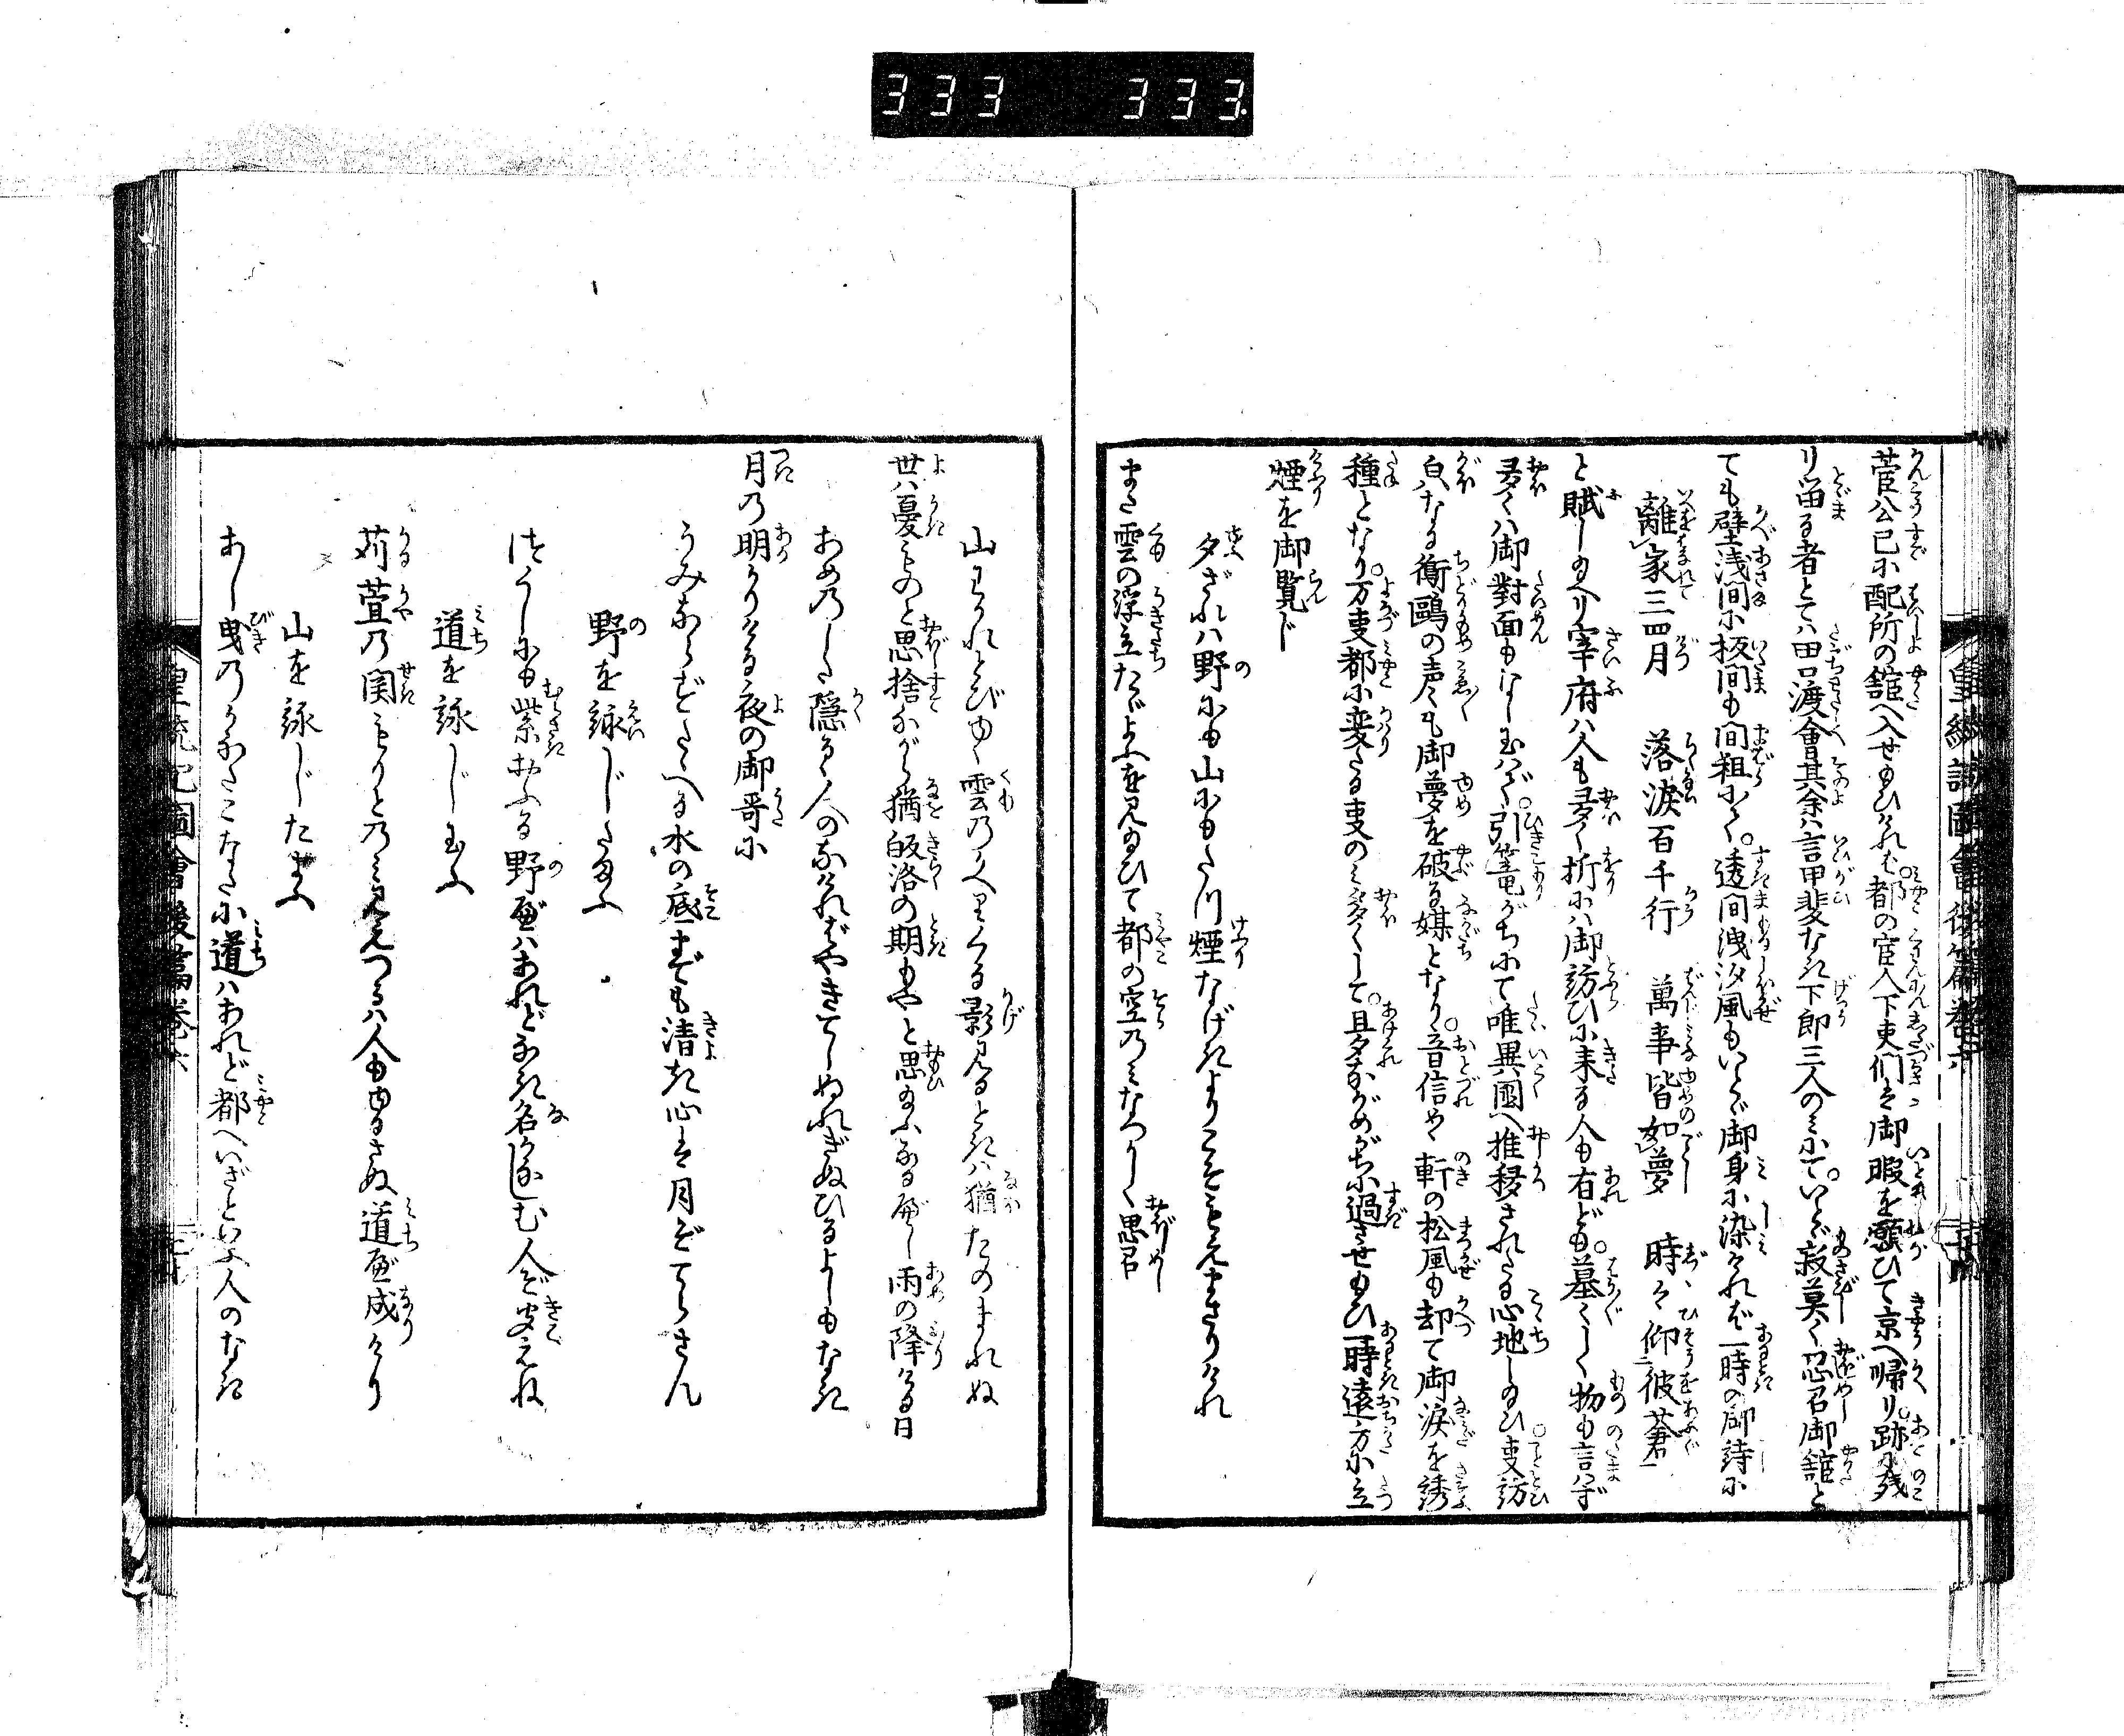 333 333
菅公已に配所の舘へ入せ給ひければ。都の官人下吏們は御暇を願ひて京へ帰り。跡に残
り留る者とては田口渡會其余は言甲斐なき下郎三人のみにて。いとゞ寂莫く思召御舘と
ても壁浅間に板間も間粗にて。透間洩汐風もいとゞ御身に染ければ一時の御詩に
離家三四月 落涙百千行 萬事皆如夢 時々仰彼蒼
と賦し給へり宰府は人も多く折には御訪ひに来る人も有ども。墓々しく物も言はず
多くは御對面もなし玉はず。引篭がちにて唯異國へ推移されたる心地し給ひ。事訪
白なる鵆鷗の声も御夢を破る媒となり。音信める軒の松風も却て御涙を誘
種となり。万事都に変たる事のみ多くして。且夕ながめがちに過させ給ひ一時遠方に立
煙を御覧じ
夕ざれは野にも山にもたつ煙なげきよりこそもえまさりけれ
また雲の浮立たゞよふを見給ひて都の空のみなつかしく思召
山わかれとびゆく雲のかへりくる影見るときは猶たのまれぬ
世は憂ものと思捨ながら猶皈洛の期もやと思給ふなるべし雨の降ける日
あめのした隠るゝ人のなければやきてしぬれぎぬひるよしもなき
月の明かりける夜の御哥に
うみならずたゝへる水の底までも清き心は月ぞてらさん
野を詠じたまふ
つくしにも紫おふる野べはあれどなき名かなしむ人ぞ聞えね
道を詠じ玉ふ
苅萱の関もりとのみ見えつるは人もゆるさぬ道べ成けり
山を詠じたまふ
あし曳のかなたこなたに道はあれど都へいざといふ人のなき